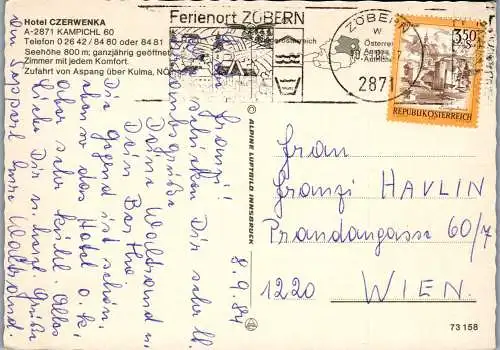 Hotel CZERWENKA
A-2871 KAMPICHL 60
Telefon 0 26 42 / 84 80 oder 84 81
Seehöhe 800 m; ganzjährig geöffnet
Zimmer mit jedem Komfort.
Zufahrt von Aspang über Kulma, NÖ
Ferienort ZÖBERN
ZÖBERN
2871
3.50
S
REPUBLIK ÖSTERREICH
© ALPINE LUFTBILD INNSBRUCK
8.9.84
Franzi!
schicken Dir sehr lb.
Grüße
Deine Waltraud u.
Dein Bertha.
Die Gegend ist schön,
ebenso das Hotel o.k.,
aber sehr kühl. Alles
Liebe Dir u. herzl. Grüße
Waltraud.
Frau
Franzi HAVLIN
Prandaugasse 60/7
1220 WIEN
73 158